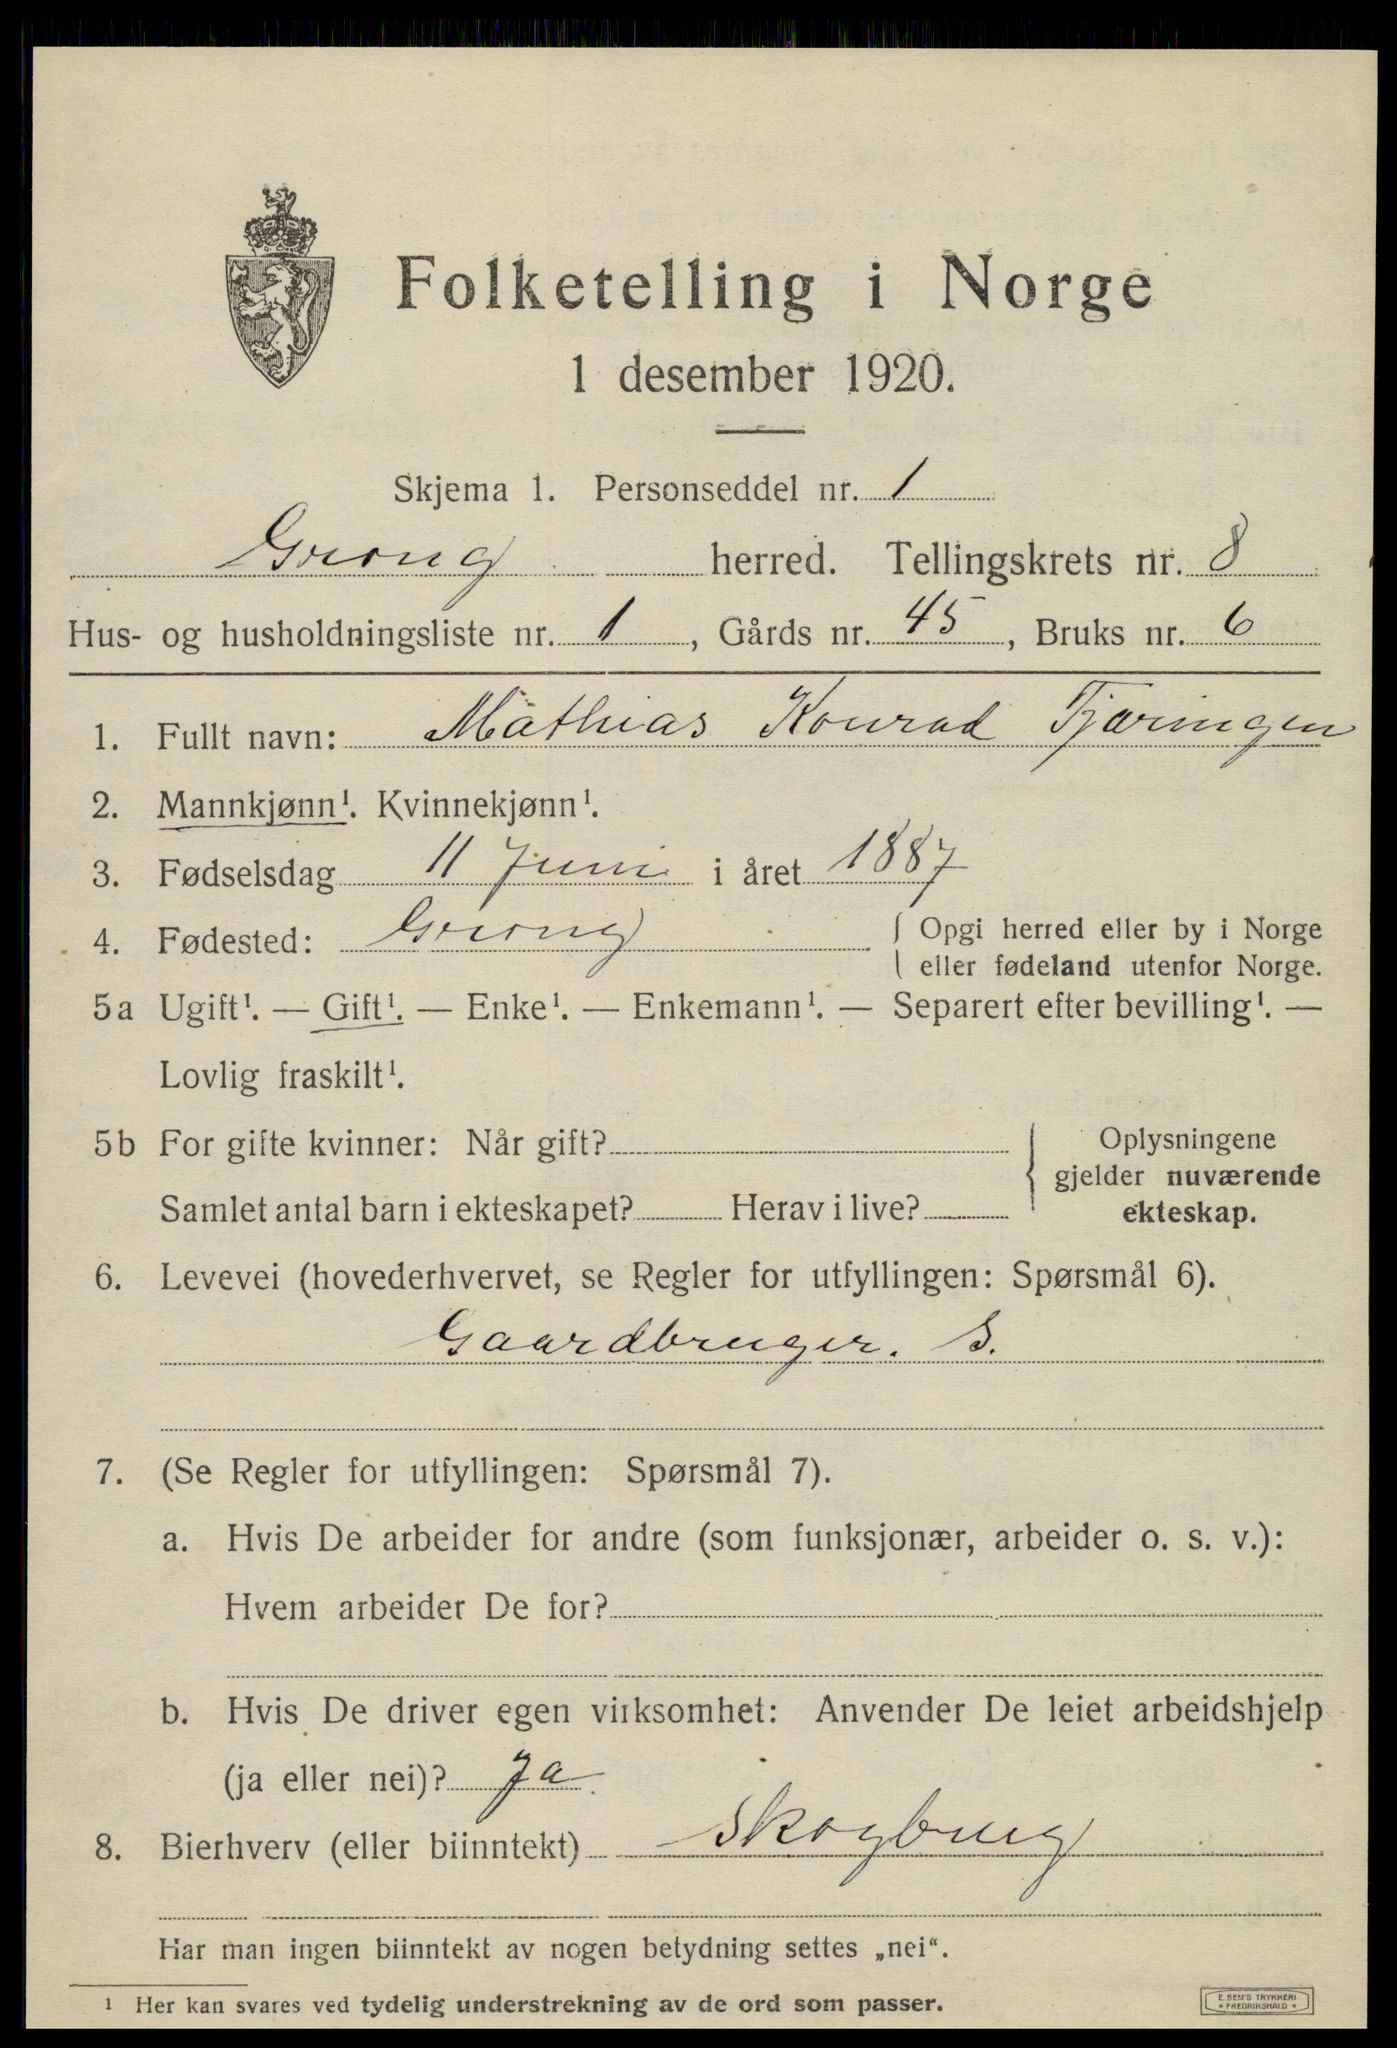 Folketelling i Norge
1 desember 1920.
Skjema 1. Personseddel nr. 1
Grong herred. Tellingskrets nr. 8
Hus- og husholdningsliste nr. 1, Gårds nr. 45, Bruks nr. 6
1. Fullt navn: Mathias Konrad Tjæringen
2. Mannkjønn¹. Kvinnekjønn¹.
3. Fødselsdag 11 Juni i året 1887
4. Fødested: Grong { Opgi herred eller by i Norge
eller fødeland utenfor Norge.
5a Ugift¹. — Gift¹. — Enke¹. — Enkemann¹. — Separert efter bevilling¹. —
Lovlig fraskilt¹.
5b For gifte kvinner: Når gift? { Oplysningene
gjelder nuværende
Samlet antal barn i ekteskapet? Herav i live? ekteskap.
6. Levevei (hovederhvervet, se Regler for utfyllingen: Spørsmål 6).
Gaardbruger. S.
7. (Se Regler for utfyllingen: Spørsmål 7).
a. Hvis De arbeider for andre (som funksjonær, arbeider o. s. v.):
Hvem arbeider De for?
b. Hvis De driver egen virksomhet: Anvender De leiet arbeidshjelp
(ja eller nei)? Ja.
8. Bierhverv (eller biinntekt) Skogbrug
Har man ingen biinntekt av nogen betydning settes „nei“.
¹ Her kan svares ved tydelig understrekning av de ord som passer.
E. SEM'S TRYKKERI
* FREDRIKSHALD *